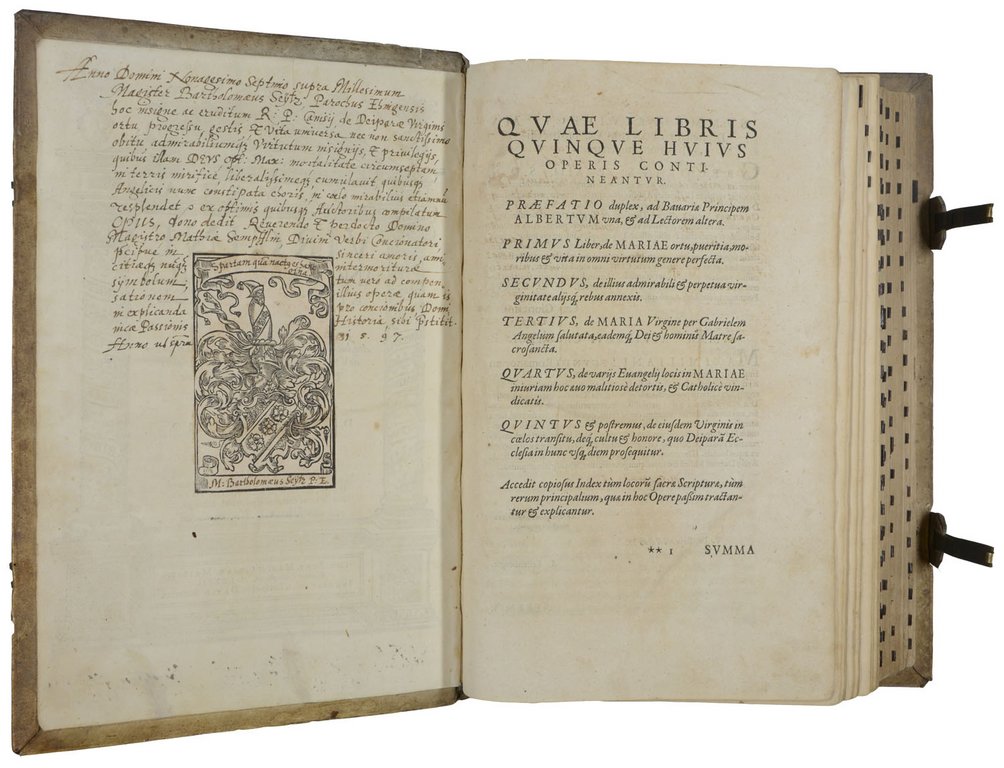 Anno Domini Nonagesimo Septimo supra Millesimum
Magister Bartholomæus Seytz Parochus Ehingensis
hoc insigne ac eruditum R: P: Canisij de Deiparæ Virginis
ortu progressu, gestis & vita universa, nec non sanctissimo
obitu admirabiliumq; Virtutum insignijs, & privilegijs,
quibus illam DEUS Opt: Max: mortalitate circumseptam
in terris mirificè, liberalissimeq; cumulavit quibusq;
Angelicis nunc constipata choris, in cœlo mirabilius etiamnu
resplendet ex optimis quibusq; Auctoribus compilatum
OPUS, dono dedit Reverendo & perdocto Domino
Magistro Mathiæ Divini Verbi Concionatori
sinceri amoris, ami
citiæq; nuq; intermorituræ
symbolum, tum vero ad compon
sationem illius operæ quam is
in explicanda pro concionibus Dom
nicæ Passionis Historia, sibi
Anno ut supra 1 5 9 7.
Spartam quā nactus es hanc
orna.
M: Bartholomæus Seytz P. E.
QVAE LIBRIS
QVINQVE HVIVS
OPERIS CONTI-
NEANTVR.
PRÆFATIO duplex, ad Bauariæ Principem
ALBERTVM vna, & ad Lectorem altera.
PRIMVS Liber, de MARIAE ortu, pueritia, mo-
ribus & vita in omni virtutum genere perfecta.
SECVNDVS, de illius admirabili & perpetua vir-
ginitate alijsq́; rebus annexis.
TERTIVS, de MARIA Virgine per Gabrielem
Angelum salutata, eademq́; Dei & hominis Matre sa-
crosancta.
QVARTVS, de varijs Euangelij locis in MARIAE
iniuriam hoc æuo malitiosè detortis, & Catholicè vin-
dicatis.
QVINTVS & postremus, de eiusdem Virginis in
cœlos transitu, deq́; cultu & honore, quo Deiparā Ec-
clesia in hunc vsq́; diem prosequitur.
Accedit copiosus Index tùm locorū sacræ Scripturæ, tùm
rerum principalium, quæ in hoc Opere passim tractan-
tur & explicantur.
** 1 SVMMA